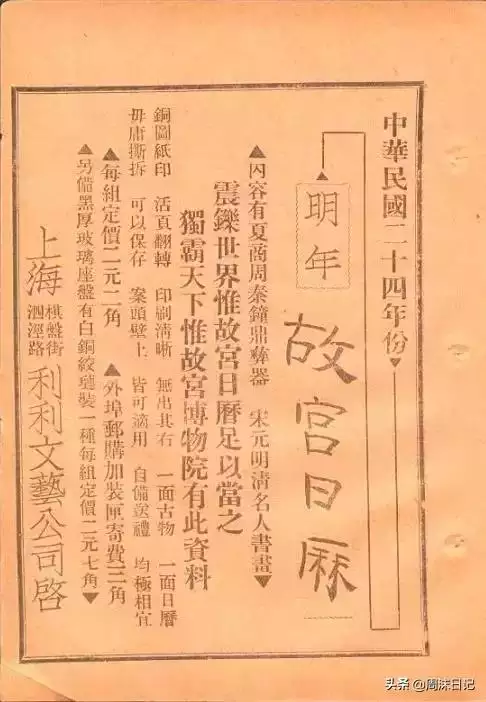 中華民國二十四年份
明年
故宮日厤
內容有夏商周秦鐘鼎彝器 宋元明清名人書畫
震鑠世界惟故宮日曆足以當之
獨霸天下惟故宮博物院有此資料
銅圖紙印 活頁翻轉 印刷清晰 無出其右 一面古物 一面日曆
毋庸撕拆 可以保存 案頭壁上 皆可適用 自備送禮 均極相宜
每組定價二元二角 外埠郵購加裝匣寄費三角
另備黑厚玻璃座盤有白銅絞璉裝一種每組定價二元七角
上海 棋盤街 泗涇路 利利文藝公司啓
头条 @周沫日记